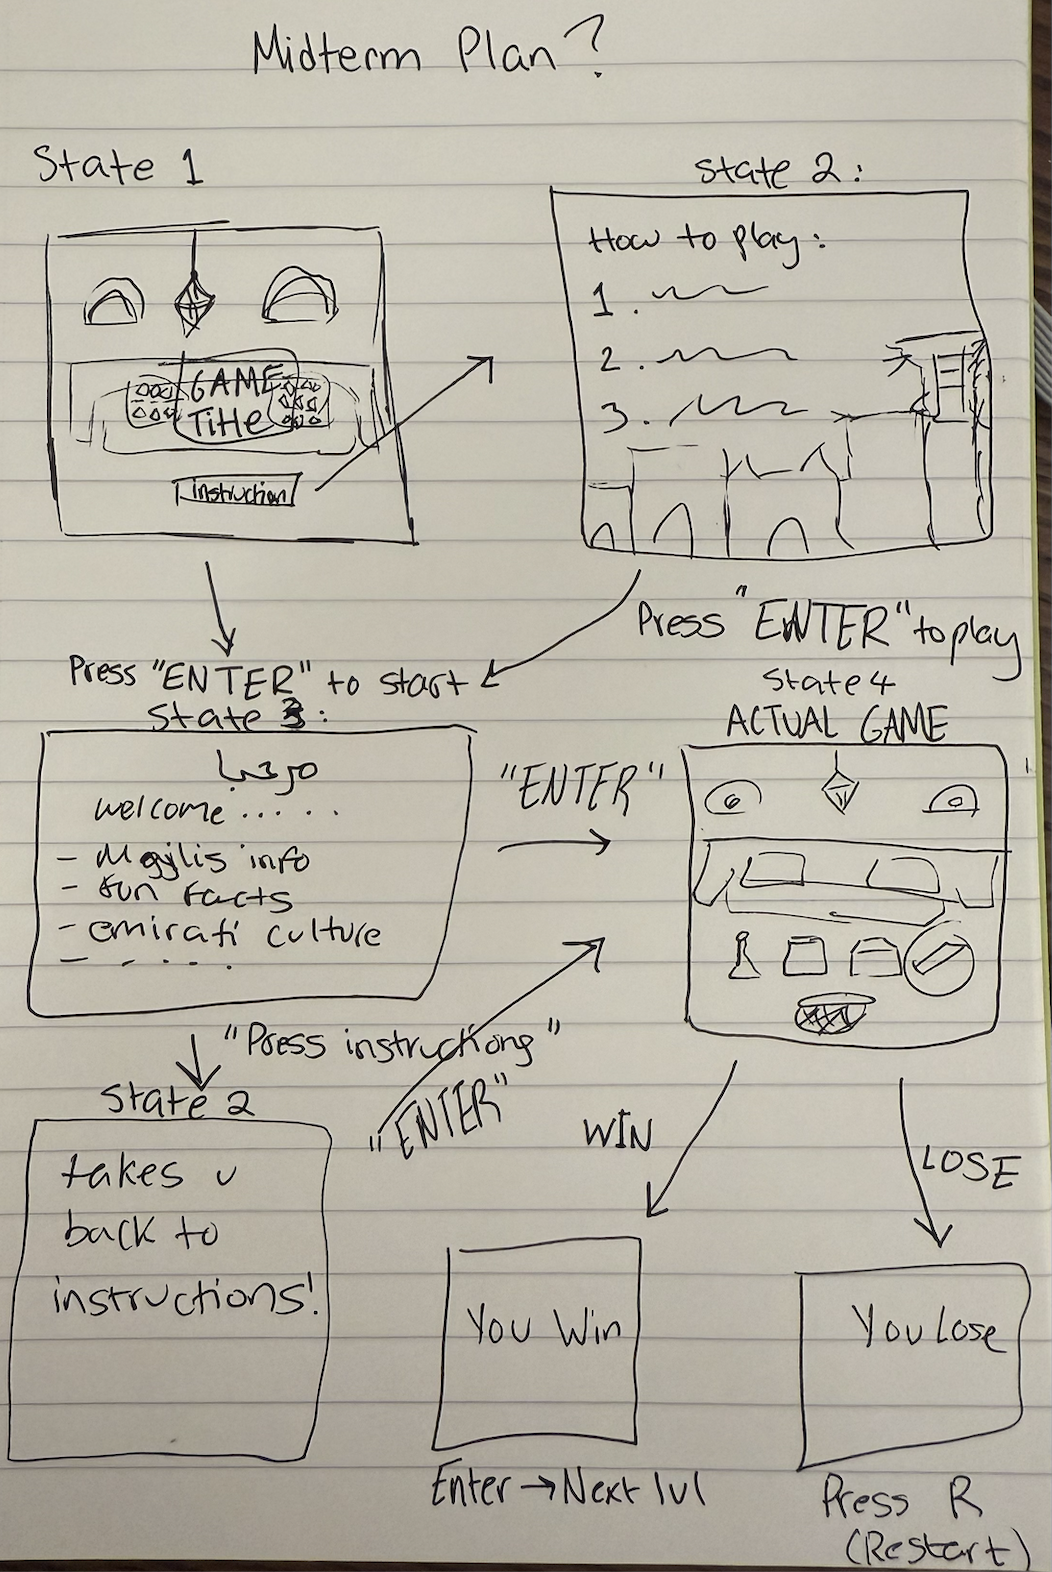 Midterm Plan?
State 1
GAME
Title
instruction
State 2:
How to play:
1.
2.
3.
Press "ENTER" to start
Press "ENTER" to play
State 3:
مرحبا
welcome .....
- Majlis info
- fun facts
- emirati culture
- - . . .
"ENTER"
State 4
ACTUAL GAME
"Press instructiong"
"ENTER"
State 2
takes u
back to
instructions!
WIN
LOSE
You Win
You Lose
Enter → Next lvl
Press R
(Restart)